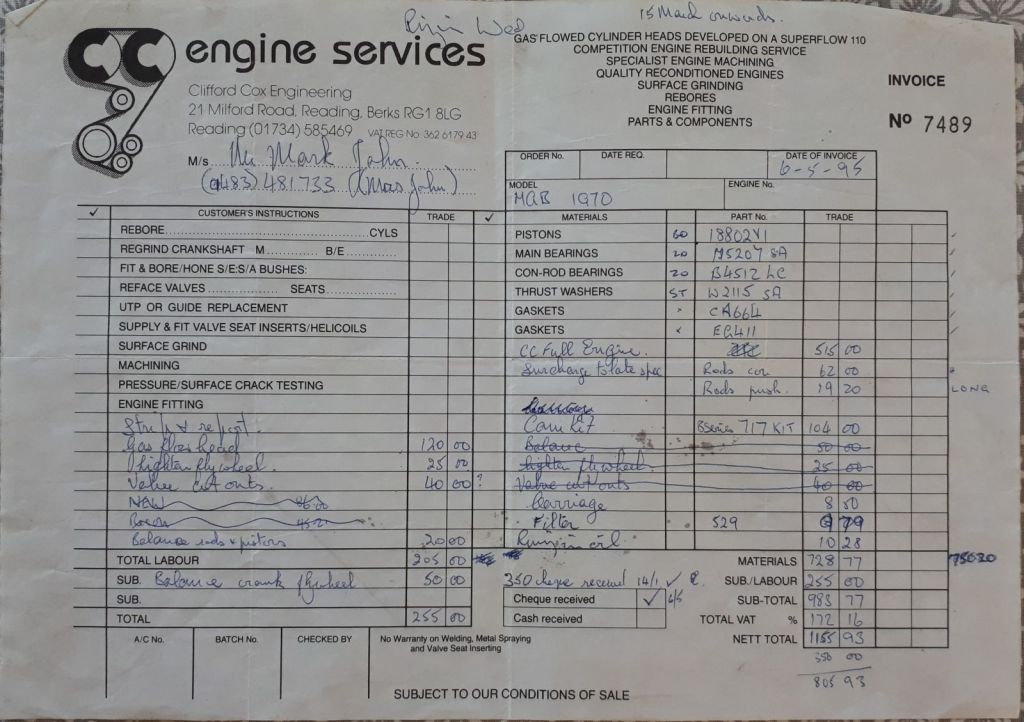 15 March onwards.
CC engine services
Clifford Cox Engineering
21 Milford Road, Reading, Berks RG1 8LG
Reading (01734) 585469 VAT REG No. 362 6179 43
GAS FLOWED CYLINDER HEADS DEVELOPED ON A SUPERFLOW 110
COMPETITION ENGINE REBUILDING SERVICE
SPECIALIST ENGINE MACHINING
QUALITY RECONDITIONED ENGINES
SURFACE GRINDING
REBORES
ENGINE FITTING
PARTS & COMPONENTS
INVOICE
No 7489
M/s Mr Mark John.
(01483) 481733 (Mrs John)
ORDER No. DATE REQ. DATE OF INVOICE
6-5-95
MODEL ENGINE No.
MGB 1970
✓ CUSTOMER'S INSTRUCTIONS TRADE ✓ MATERIALS PART No. TRADE
REBORE CYLS PISTONS 60 18802V1
REGRIND CRANKSHAFT M B/E MAIN BEARINGS 20 M5207 SA
FIT & BORE/HONE S/E:S/A BUSHES: CON-ROD BEARINGS 20 B4512 LC
REFACE VALVES SEATS THRUST WASHERS ST W2115 SA
UTP OR GUIDE REPLACEMENT GASKETS CA664
SUPPLY & FIT VALVE SEAT INSERTS/HELICOILS GASKETS EG411
SURFACE GRIND CC Full Engine. 515 00
MACHINING Surcharge to late spec Rods con 62 00
PRESSURE/SURFACE CRACK TESTING Rods push. 19 20 LONG
ENGINE FITTING
Strip & report. Cam Kit BSeries 717 KIT 104 00
Gas flow head 120 00 Balance 50 00
Lighten flywheel. 25 00 Lighten flywheel. 25 00
Valve cut outs. 40 00 ? Valve cut outs 40 00
NEW 86-00 Carriage 8 50
45-21 Filter 529 9 79
Balance rods & pistons 20 00 Running in oil. 10 28
TOTAL LABOUR 205 00 MATERIALS 728 77
SUB. Balance crank flywheel 50 00 350 cheque received 14/1 ✓ SUB./LABOUR 255 00
SUB. Cheque received ✓ 6/5 SUB-TOTAL 983 77
TOTAL 255 00 Cash received TOTAL VAT % 172 16
NETT TOTAL 1155 93
350 00
805 93
A/C No. BATCH No. CHECKED BY
No Warranty on Welding, Metal Spraying
and Valve Seat Inserting
SUBJECT TO OUR CONDITIONS OF SALE